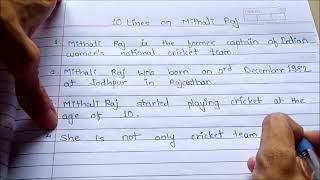 10 Lines on Mithali Raj
1. Mithali Raj is the former captain of Indian
women's national cricket team.
2. Mithali Raj was born on 3rd December 1982
at Jodhpur in Rajasthan.
Mithali Raj started playing cricket at the
age of 10.
4. She is not only cricket team